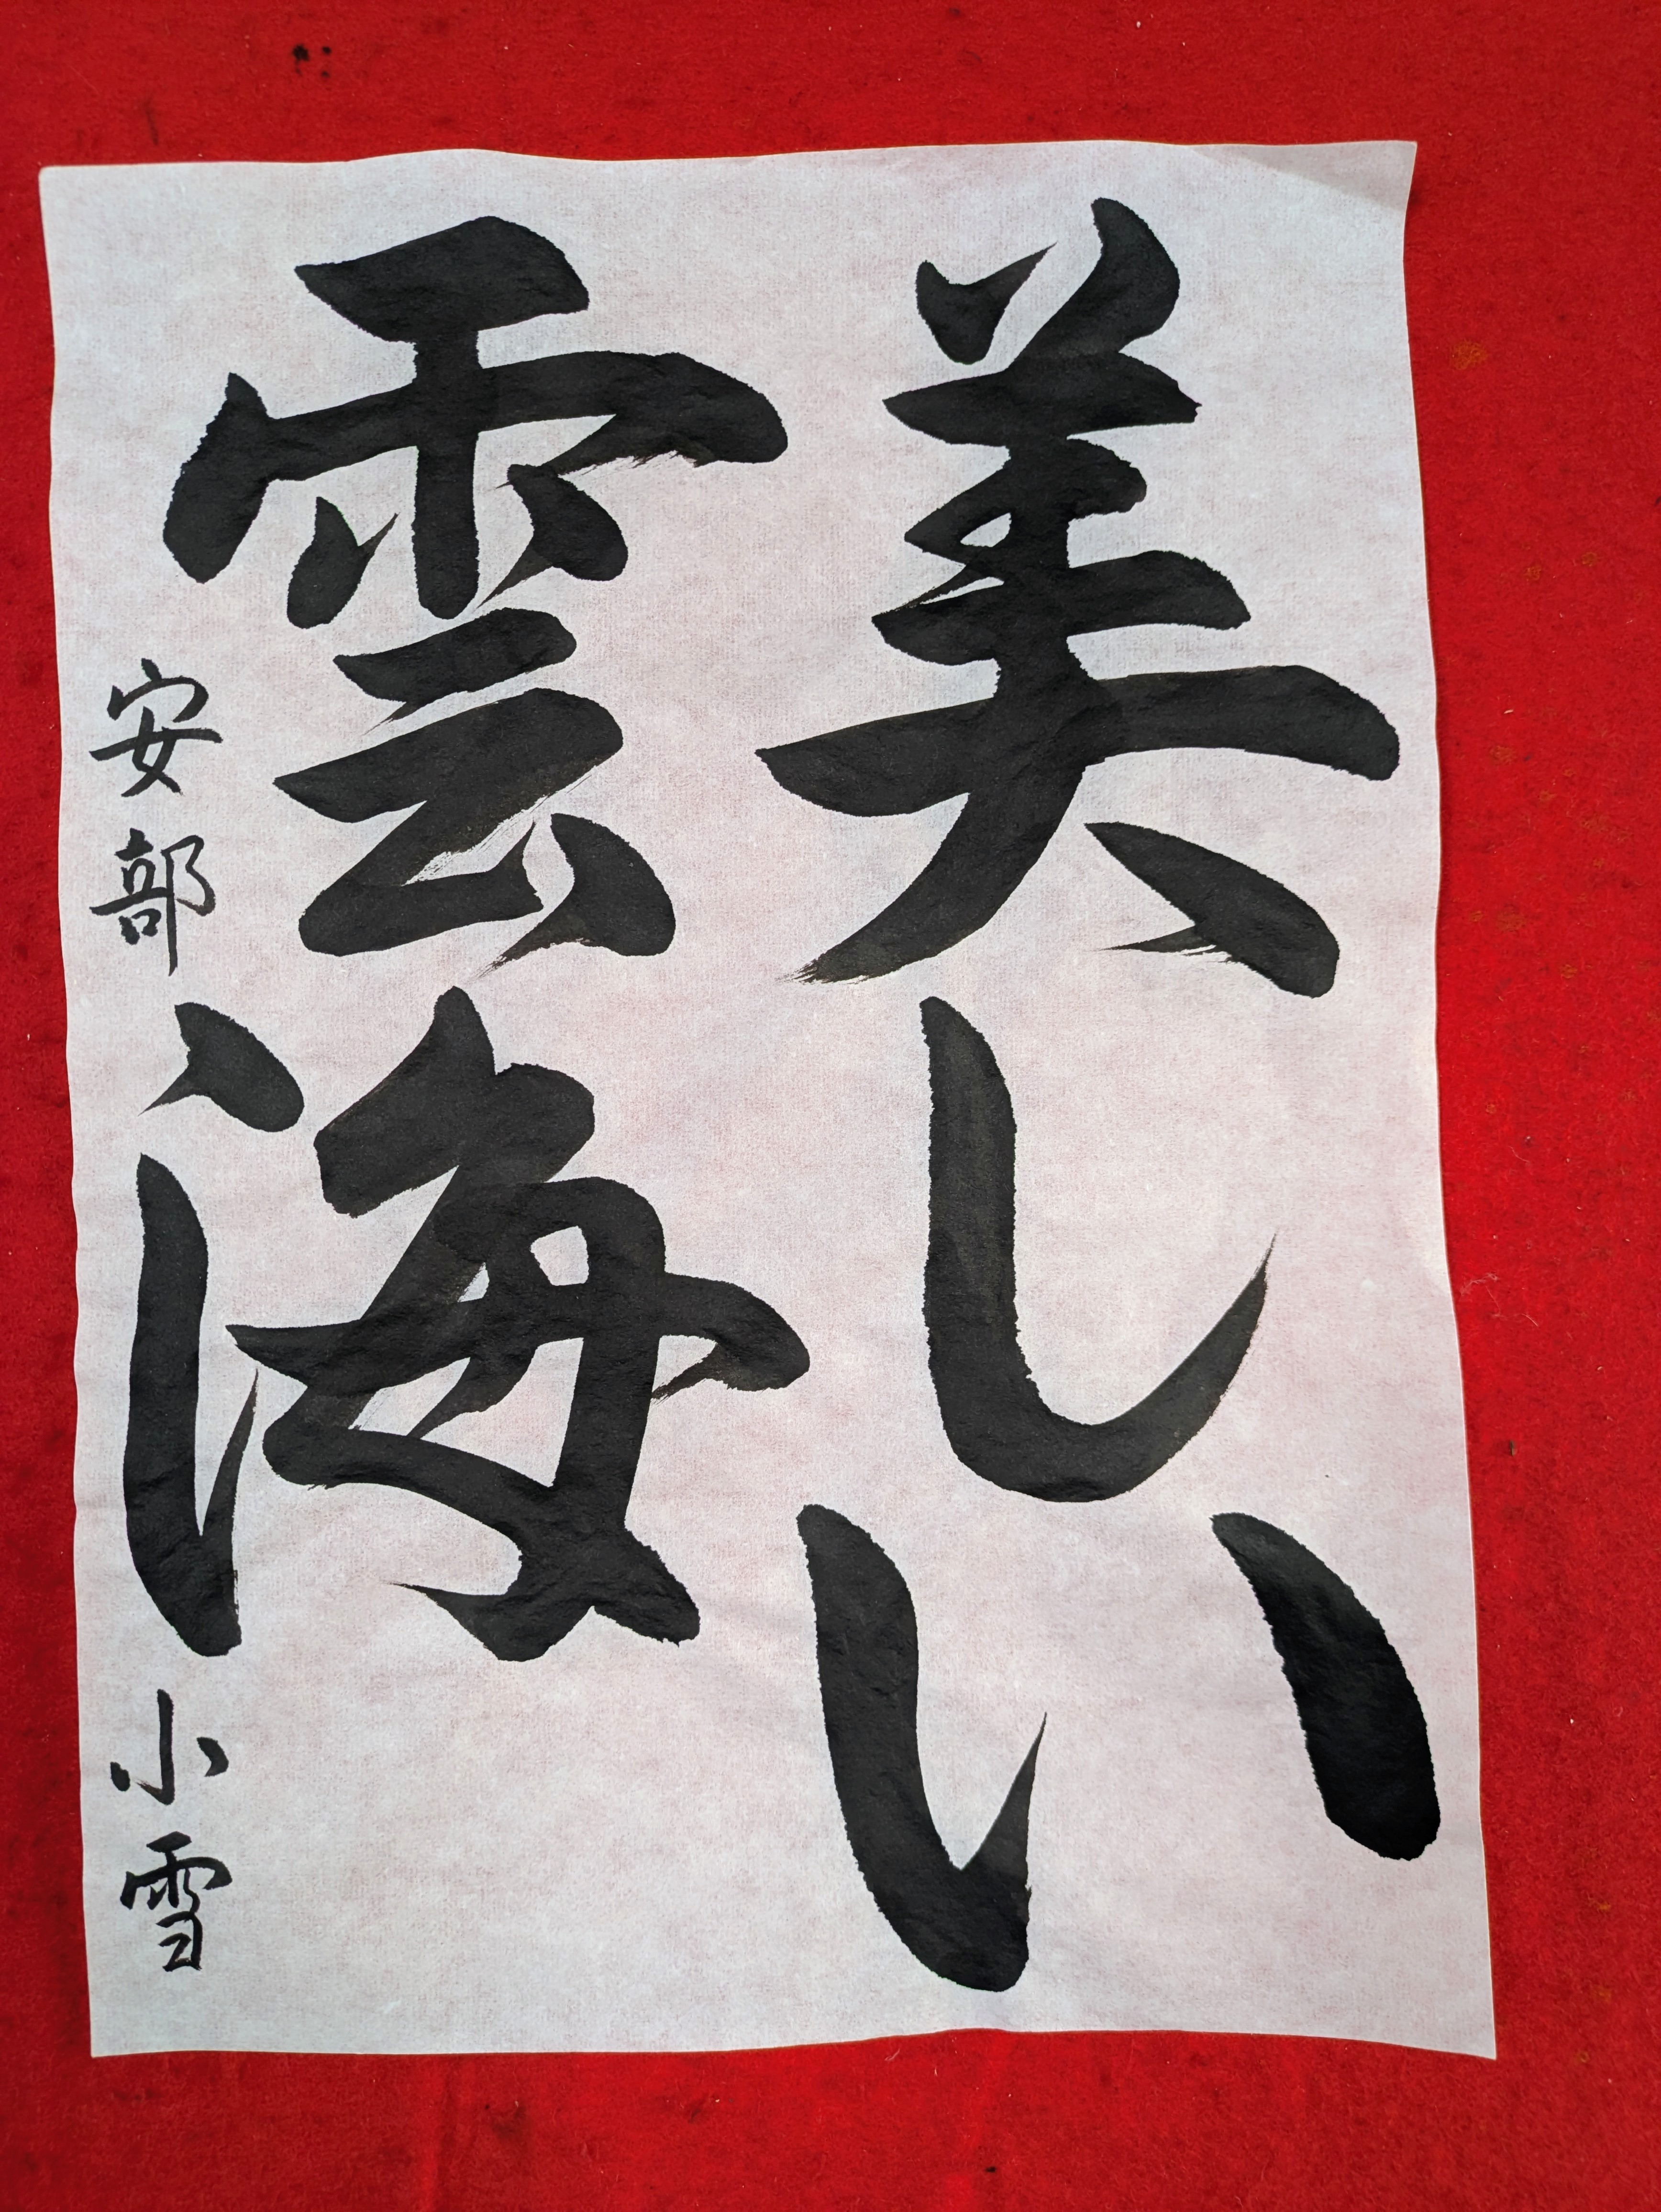 美しい
雲海
安部小雪